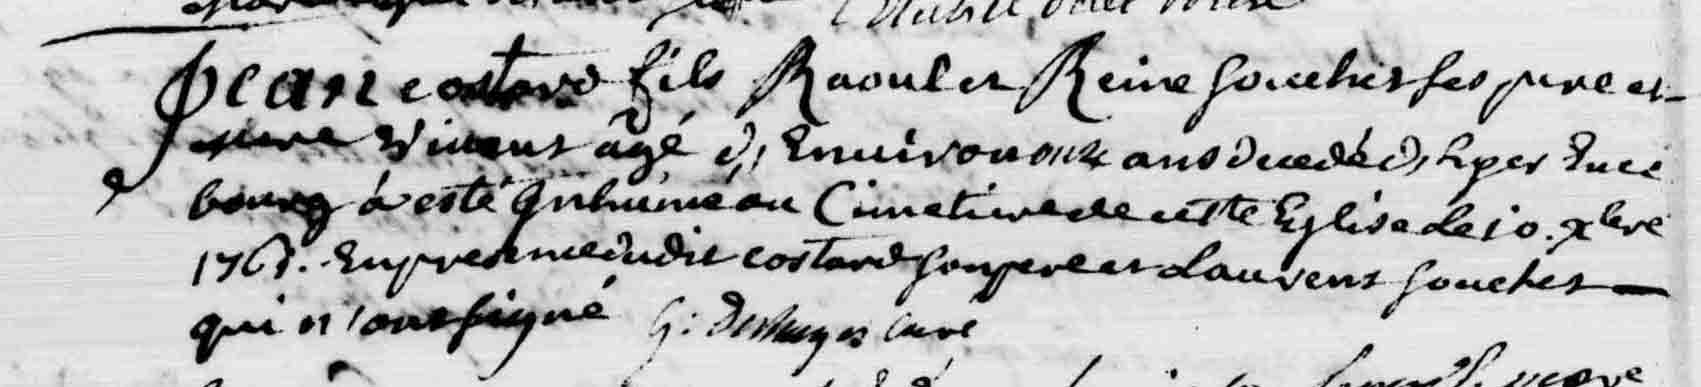 Jean costard fils Raoul et Reine Gouchet ses pere et
mere vivant âgé d'Environ onze ans decedé d'hyer En ce
bourg à esté Inhumé au Cimetiere de cette Eglise le 10. xbre
1763. En presence dudit costard son pere et Laurent Gouchet
qui n'ont signé G: curé